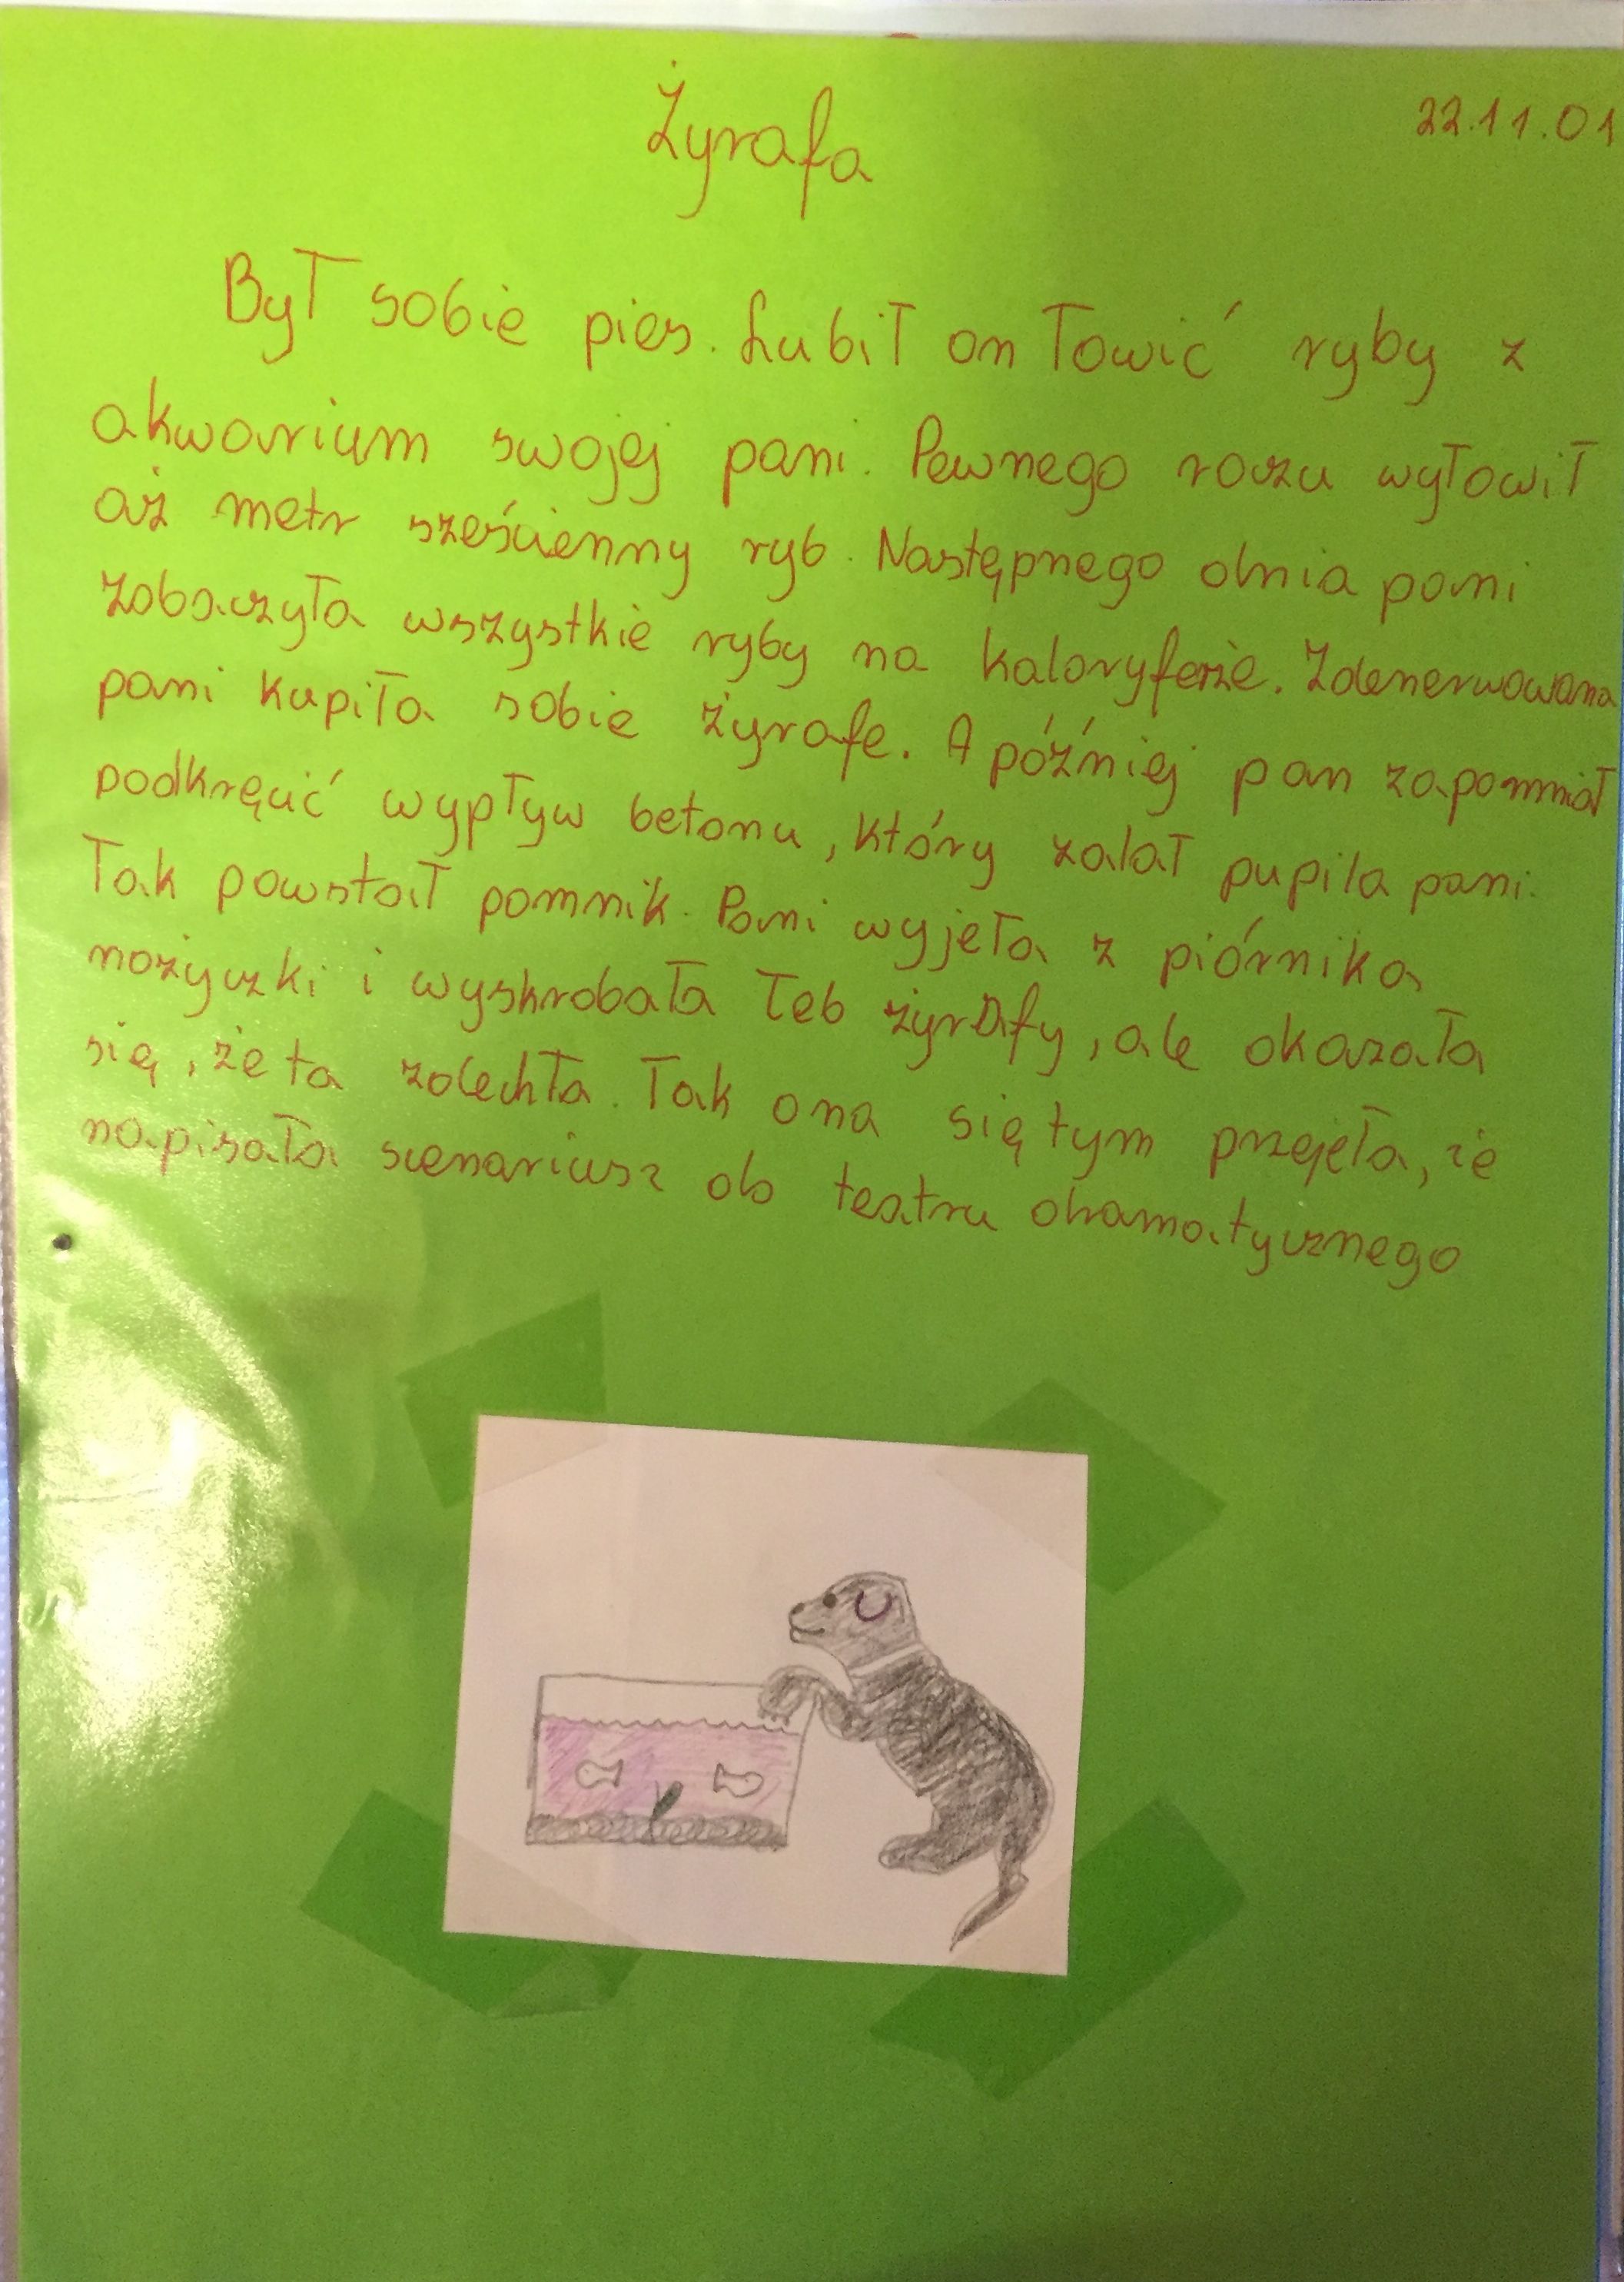 Żyrafa
22.11.01
Był sobie pies. Lubił on łowić ryby z
akwarium swojej pani. Pewnego razu wyłowił
aż metr sześcienny ryb. Następnego dnia pani
zobaczyła wszystkie ryby na kaloryferze. Zdenerwowana
pani kupiła sobie żyrafe. A później pan zapomniał
podkręcić wypływ betonu, który zalał pupila pani.
Tak powstał pomnik. Pani wyjeła z piórnika
nożyczki i wyskrobała łeb żyrafy, ale okazała
się, że ta zdechła. Tak ona się tym przejeła, że
napisała scenariusz do teatru dramatycznego